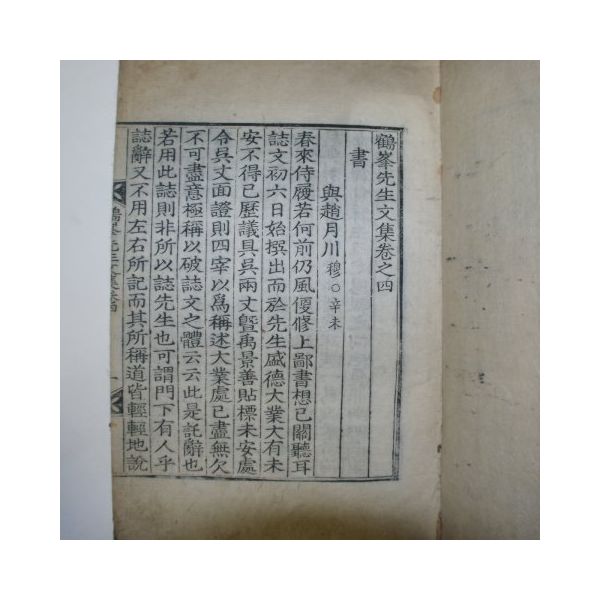 鶴峯先生文集卷之四
書
與趙月川 穆○辛未
春來侍履若何前仍風便修上鄙書想已關聽耳
誌文初六日始撰出而於先生盛德大業大有未
安不得已歷議具吳兩丈曁禹景善貼標未安處
令吳丈面證則四宰以爲稱述大業處已盡無欠
不可盡意極稱以破誌文之體云云此是託辭也
若用此誌則非所以誌先生也可謂門下有人乎
誌辭又不用左右所記而其所稱道皆輕輕地說
鶴峯先生文集卷四
一